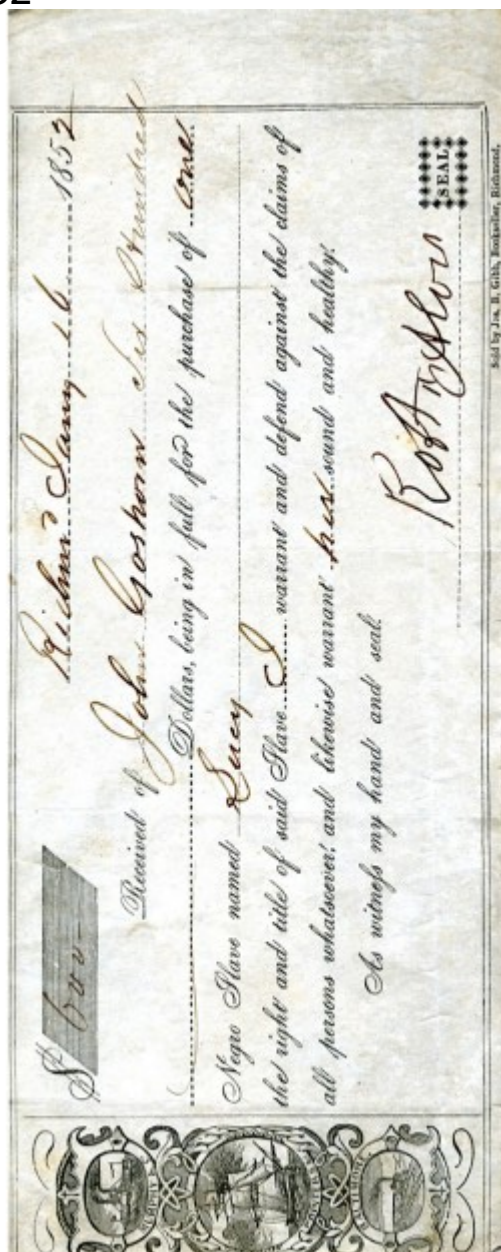 $ 600 –
Richmd Jany 16 1852
Received of John Goshorn Six Hundred
Dollars, being in full for the purchase of one
Negro Slave named Lucy
the right and title of said Slave I warrant and defend against the claims of
all persons whatsoever; and likewise warrant her sound and healthy.
As witness my hand and seal.
SEAL